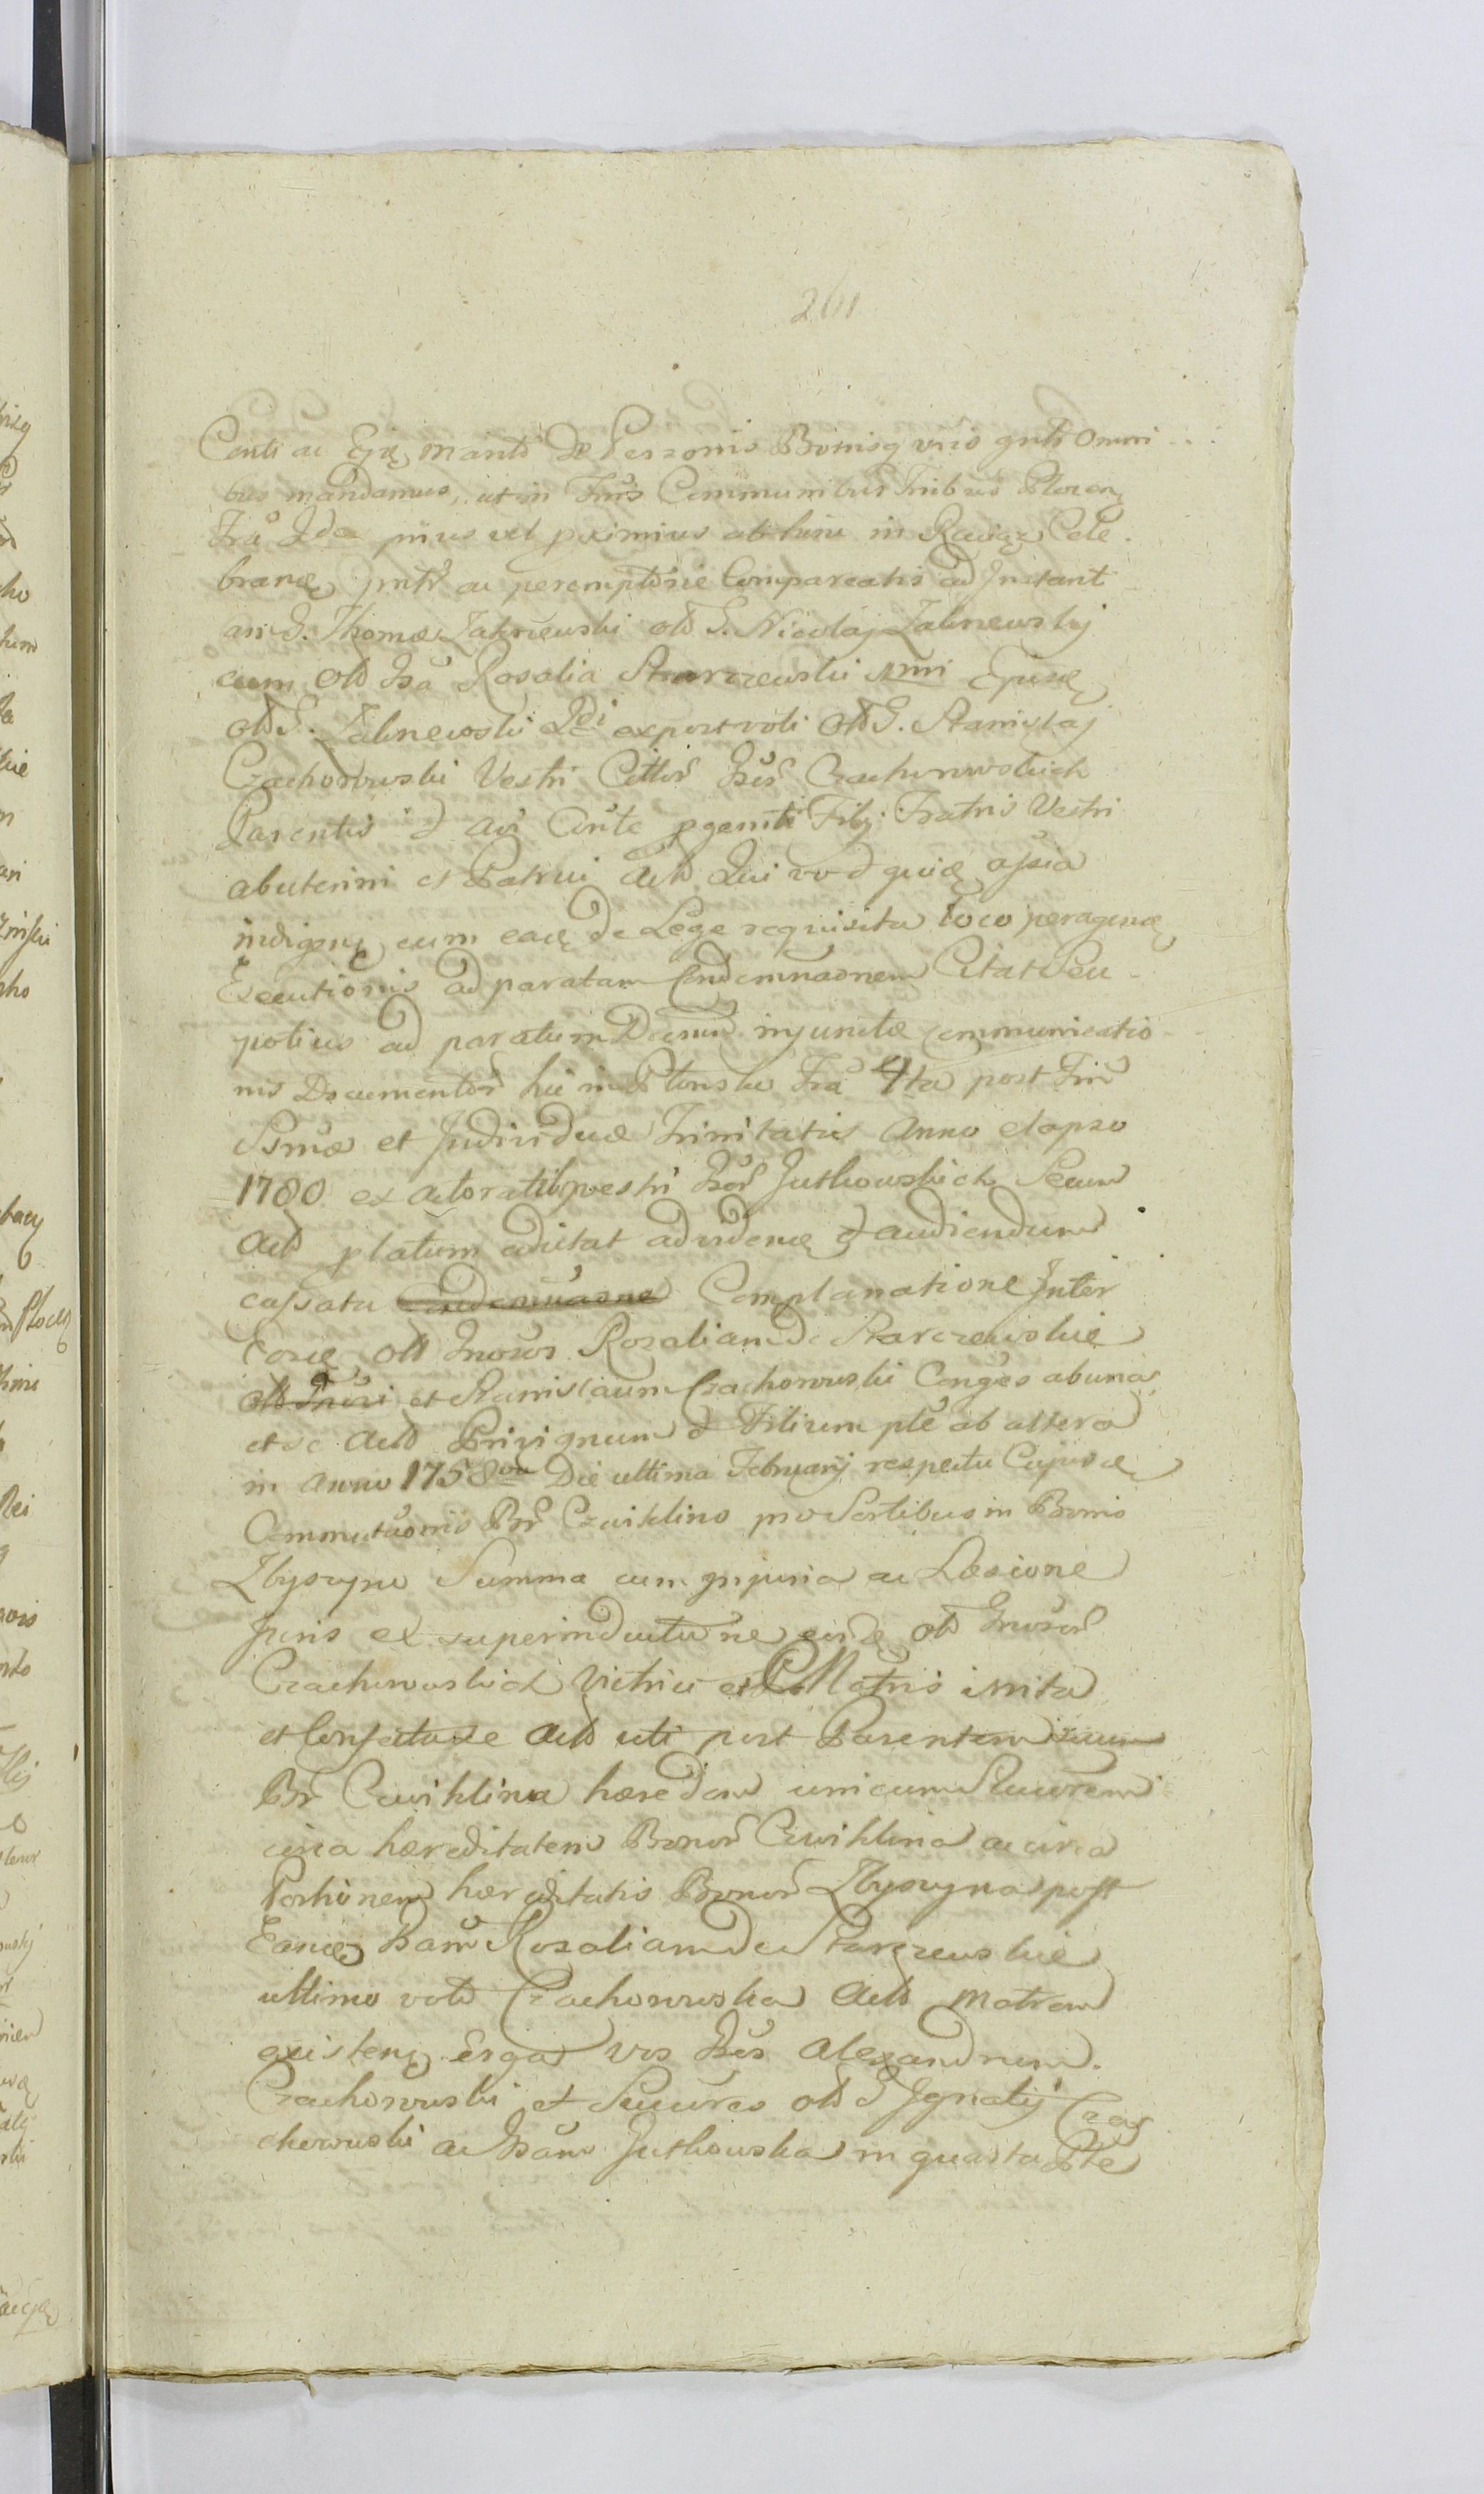 201
Centi ac Ejusq manto De Personis Bonisq vris gnts Omni
bus mandamus, ut in Tnis Communibus Tribus Plocen
Fra 2da prius vel pximius ab hinc in Raciąz Cele
branę pntr ac peremptorie Compareatis ad Instant
am G. Thomæ Zakrzewski olb G. Nicolaj Zakrzewskij
cum olb Gsa Rosalia Starczewski 1mi Ejusq
olb G. Zakrzewski 2di expost voti olb G. Stanislaj
Czachorowski Vestri Cittor Gsor Czachorowskich
Parentis et avi Conte pgeniti Filij Fratris Vestri
abuterini et Patrui Actb Qui vos quiq assia
indigenę cum eaq de Lege requisita loco peragenę
Executionis ad paratam Condemnaonem Citat Seu
potius ad paratum Decreti injunctæ communicatio
nis Documentor hic in Plonsko Fra 4ta post Fm
Ssmæ et Individuæ Trinitatis Anno elapso
1780 ex actoratu vestri Gsor Jutkowskich Secum
Actb platum edictat ad videnę et audiendum
cassatu Condemnaone Complanatione Inter
Eosq olb Gnosos Rosaliam de Starczewskie
olb Gnosi et Stanislaum Czachorowski Conges ab una
et se Actb Privignum et Filium pte ab altera
in Anno 1758vo Die ultima Februarij respectu Cujusq
Commutaonis Br Cwiklino pro Sortibus in Bonis
Zbyszyno Summa cum injuria ac Læsione
Juris ex superinductione eorq olb Gnosor
Czachorowskich Vitrici et Matris inita
et Confectaqe Actb uti post Parentem suum
Br Cwiklina hæredem unicum Sucorem
circa hæreditatem Bonor Cwiklina ac circa
Portionem hæreditatis Bonor Zbyszyna post
Eanq Gsam Rozaliam de Starczewskie
ultimo voto Czachorowska Actb Matrem
existenę Erga vos Gsos Alexandrum
Czachorowski et Sucores olb G Ignatij Cza
chorowski ac Gsam Jutkowska in quarta Pte